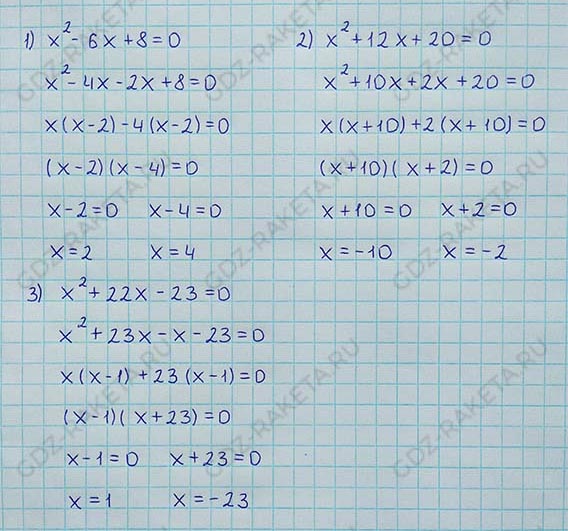 1) x² - 6x + 8 = 0
x² - 4x - 2x + 8 = 0
x(x-2) - 4(x-2) = 0
(x-2)(x-4) = 0
x-2=0 x-4=0
x=2 x=4
2) x² + 12x + 20 = 0
x² + 10x + 2x + 20 = 0
x(x+10) + 2(x+10) = 0
(x+10)(x+2) = 0
x+10=0 x+2=0
x=-10 x=-2
3) x² + 22x - 23 = 0
x² + 23x - x - 23 = 0
x(x-1) + 23(x-1) = 0
(x-1)(x+23) = 0
x-1=0 x+23=0
x=1 x=-23
GDZ-RAKETA.RU